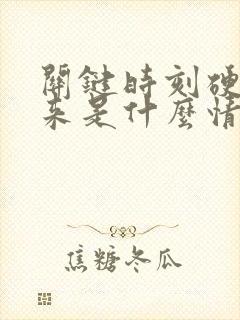 關鍵時刻硬
來是什麼情
焦糖冬瓜